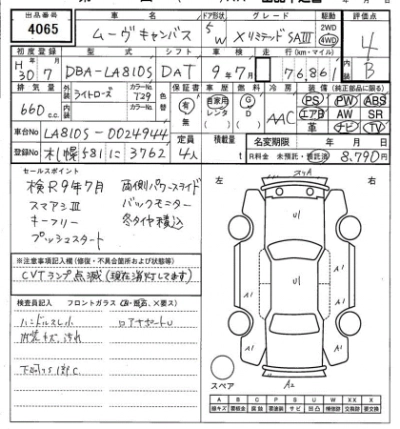 出品番号 車名 ドア形状 グレード 駆動 評価点
4065 ムーヴキャンバス 5W XリミテッドSAⅢ 2WD 4WD 4
初度登録 型式 シフト 車検 走行(km・マイル) 内装
H30 7 DBA-LA810S DAT 9年7月 76,861 B
排気量 外装 カラーNo. 色替 保証書 車歴 燃料 冷房 装備(純正部品に限る)
660cc ライトローズ T29 有 無 自家用 レンタ G D AAC PS PW ABS
内装 カラーNo. エアB AW SR
革 ナビ TV
車台No LA810S-0024944 定員 積載量 名変期限 年 月 日
登録No 札幌 581 に 3762 4人 R料金 未預託・預託済 8,790円
セールスポイント
検R9年7月 両側パワースライド
スマアシⅢ バックモニター
キーフリー 冬タイヤ積込
プッシュスタート
※注意事項記入欄(修復・不具合箇所および状態等)
CVTランプ点滅(現在消灯してます)
検査員記入 フロントガラス
ハンドルスレ小 ロアサポートU
内装キズ、汚れ
左 右
U1
A1
A1
A1
U1
A1
A1
スペア
A2
A B P W S U W X XX R